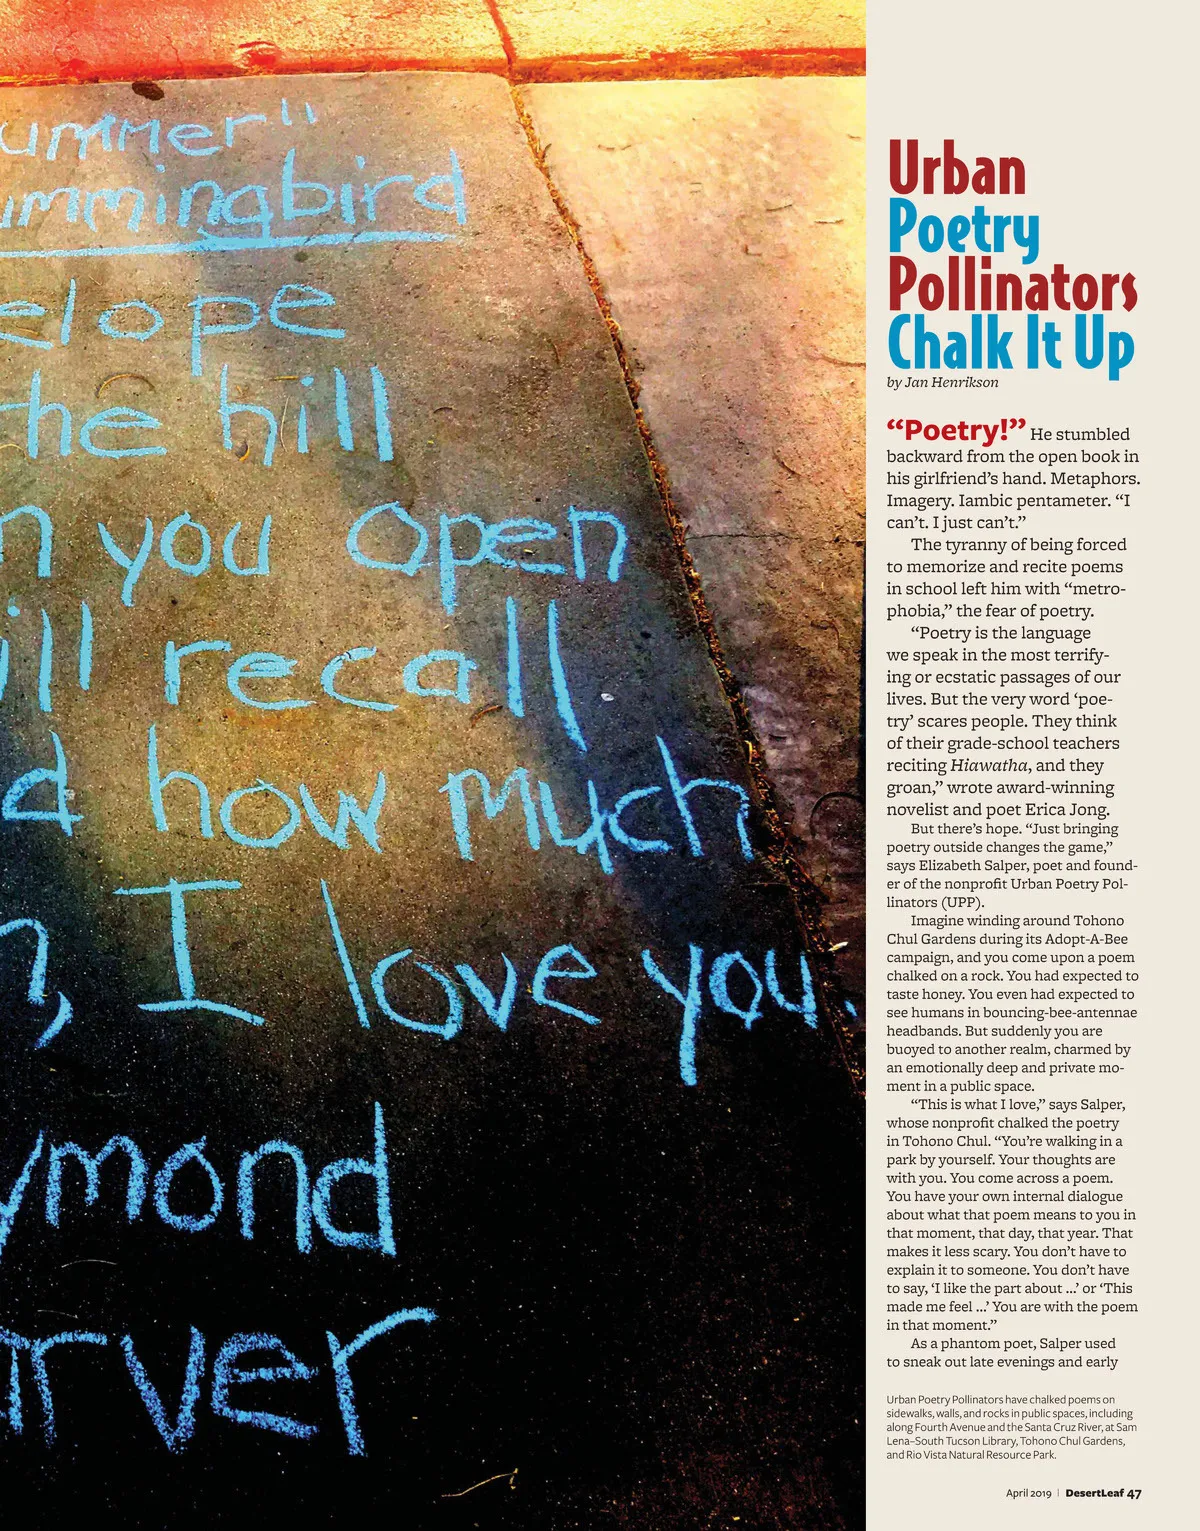 ummer"
ummingbird
elope
he hill
n you open
ill recall
d how much
n, I love you.
ymond
arver
Urban
Poetry
Pollinators
Chalk It Up
by Jan Henrikson
“Poetry!” He stumbled
backward from the open book in
his girlfriend’s hand. Metaphors.
Imagery. Iambic pentameter. “I
can’t. I just can’t.”
The tyranny of being forced
to memorize and recite poems
in school left him with “metro-
phobia,” the fear of poetry.
“Poetry is the language
we speak in the most terrify-
ing or ecstatic passages of our
lives. But the very word ‘poe-
try’ scares people. They think
of their grade-school teachers
reciting Hiawatha, and they
groan,” wrote award-winning
novelist and poet Erica Jong.
But there’s hope. “Just bringing
poetry outside changes the game,”
says Elizabeth Salper, poet and found-
er of the nonprofit Urban Poetry Pol-
linators (UPP).
Imagine winding around Tohono
Chul Gardens during its Adopt-A-Bee
campaign, and you come upon a poem
chalked on a rock. You had expected to
taste honey. You even had expected to
see humans in bouncing-bee-antennae
headbands. But suddenly you are
buoyed to another realm, charmed by
an emotionally deep and private mo-
ment in a public space.
“This is what I love,” says Salper,
whose nonprofit chalked the poetry
in Tohono Chul. “You’re walking in a
park by yourself. Your thoughts are
with you. You come across a poem.
You have your own internal dialogue
about what that poem means to you in
that moment, that day, that year. That
makes it less scary. You don’t have to
explain it to someone. You don’t have
to say, ‘I like the part about ...’ or ‘This
made me feel ...’ You are with the poem
in that moment.”
As a phantom poet, Salper used
to sneak out late evenings and early
Urban Poetry Pollinators have chalked poems on
sidewalks, walls, and rocks in public spaces, including
along Fourth Avenue and the Santa Cruz River, at Sam
Lena–South Tucson Library, Tohono Chul Gardens,
and Rio Vista Natural Resource Park.
April 2019 | DesertLeaf 47